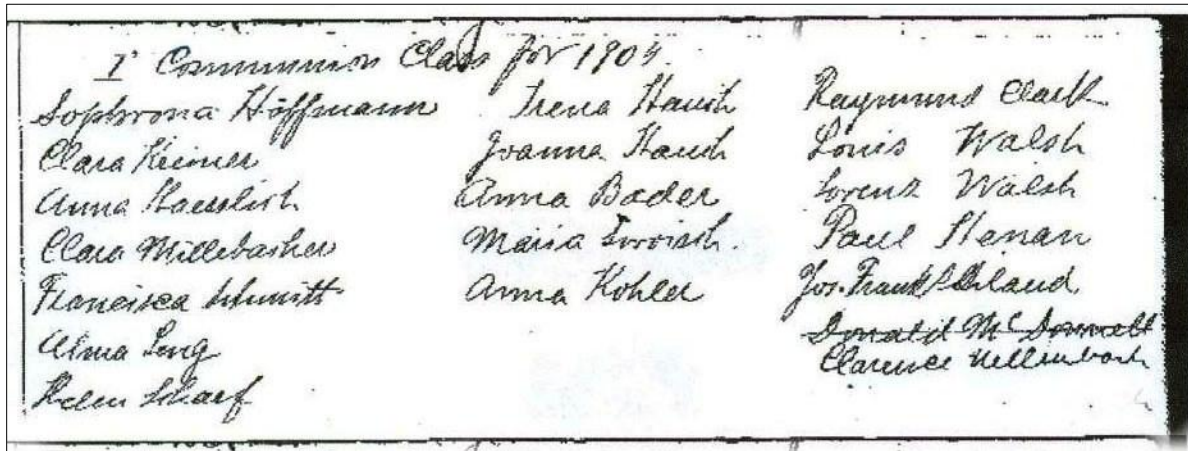 1' Communion Class for 1904.
Sophrona Höffmann
Clara Kremer
Anna Haesslich
Clara Millebacher
Francisca Schmitt
Alma Leng
Helen Scharf
Irena Hauch
Joanna Hauch
Anna Bader
Maria
Anna Kohler
Raymund Clark
Louis Walsh
Lorenz Walsh
Paul Henan
Jos. Frank
Donald McDonnell
Clarence Mellenbach